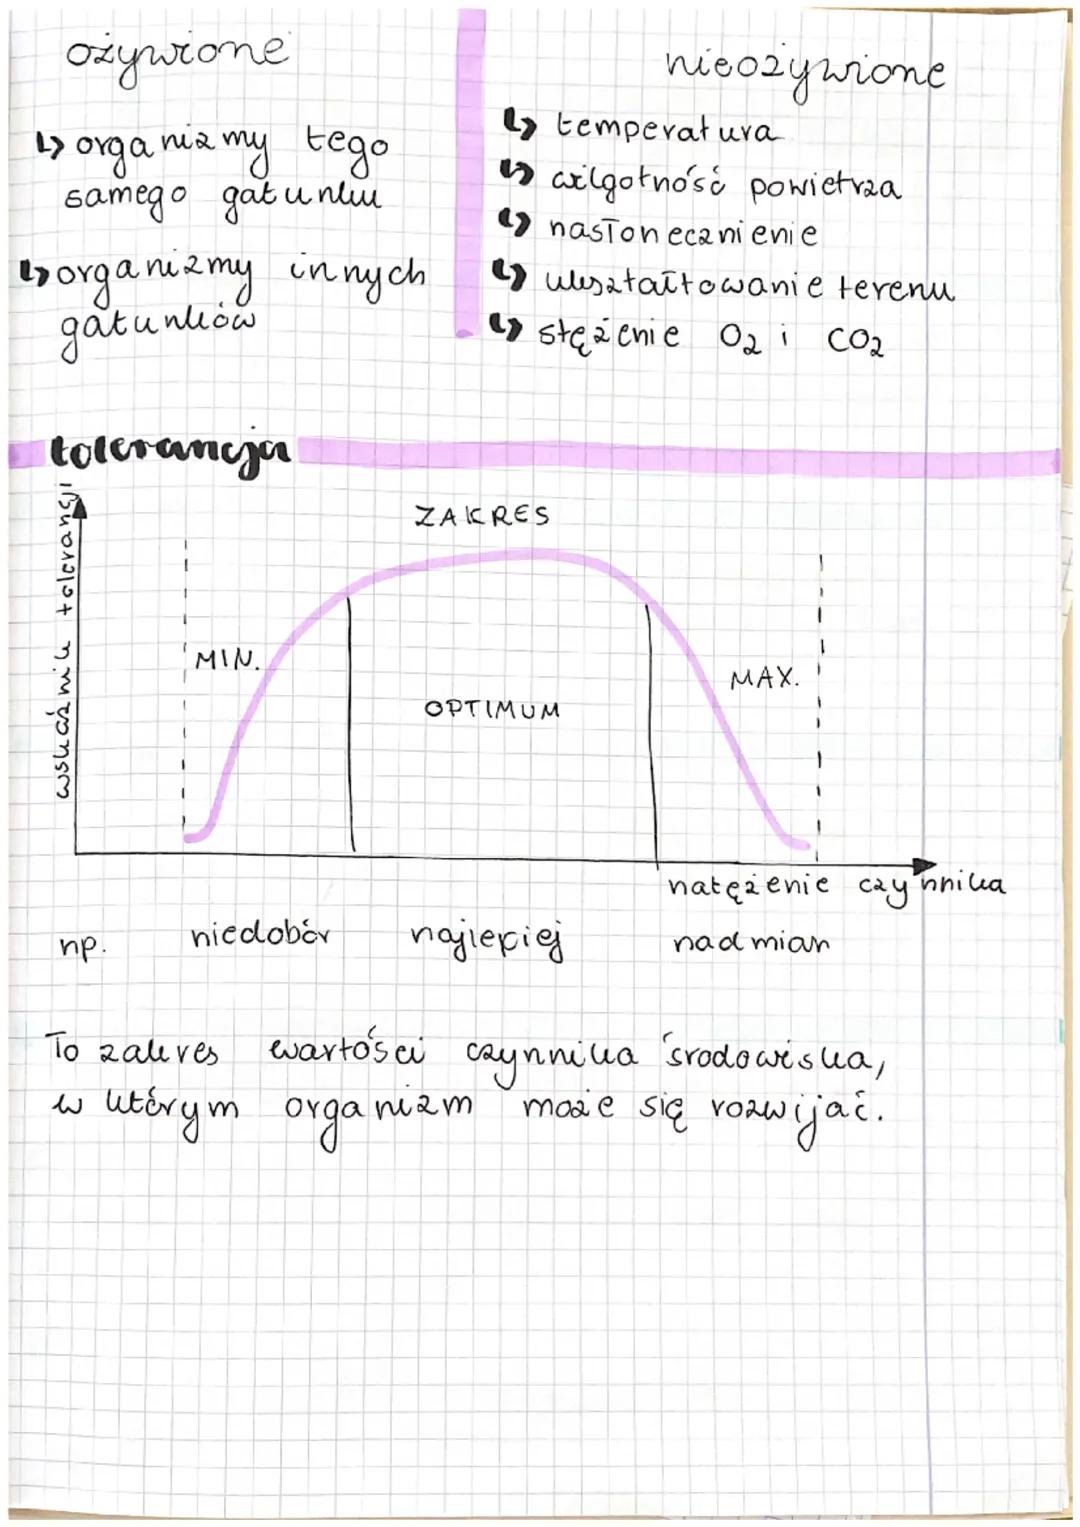 ożywione
↳ organizmy tego
samego gatunku
↳ organizmy innych
gatunków
nieożywione
↳ temperatura
↳ wilgotność powietrza
↳ nasłonecznienie
↳ ukształtowanie terenu
↳ stężenie O₂ i CO₂
tolerancja
wskaźnik tolerancji
ZAKRES
MIN.
OPTIMUM
MAX.
natężenie czynnika
np. niedobór najlepiej nadmiar
To zakres wartości czynnika środowiska,
w którym organizm może się rozwijać.